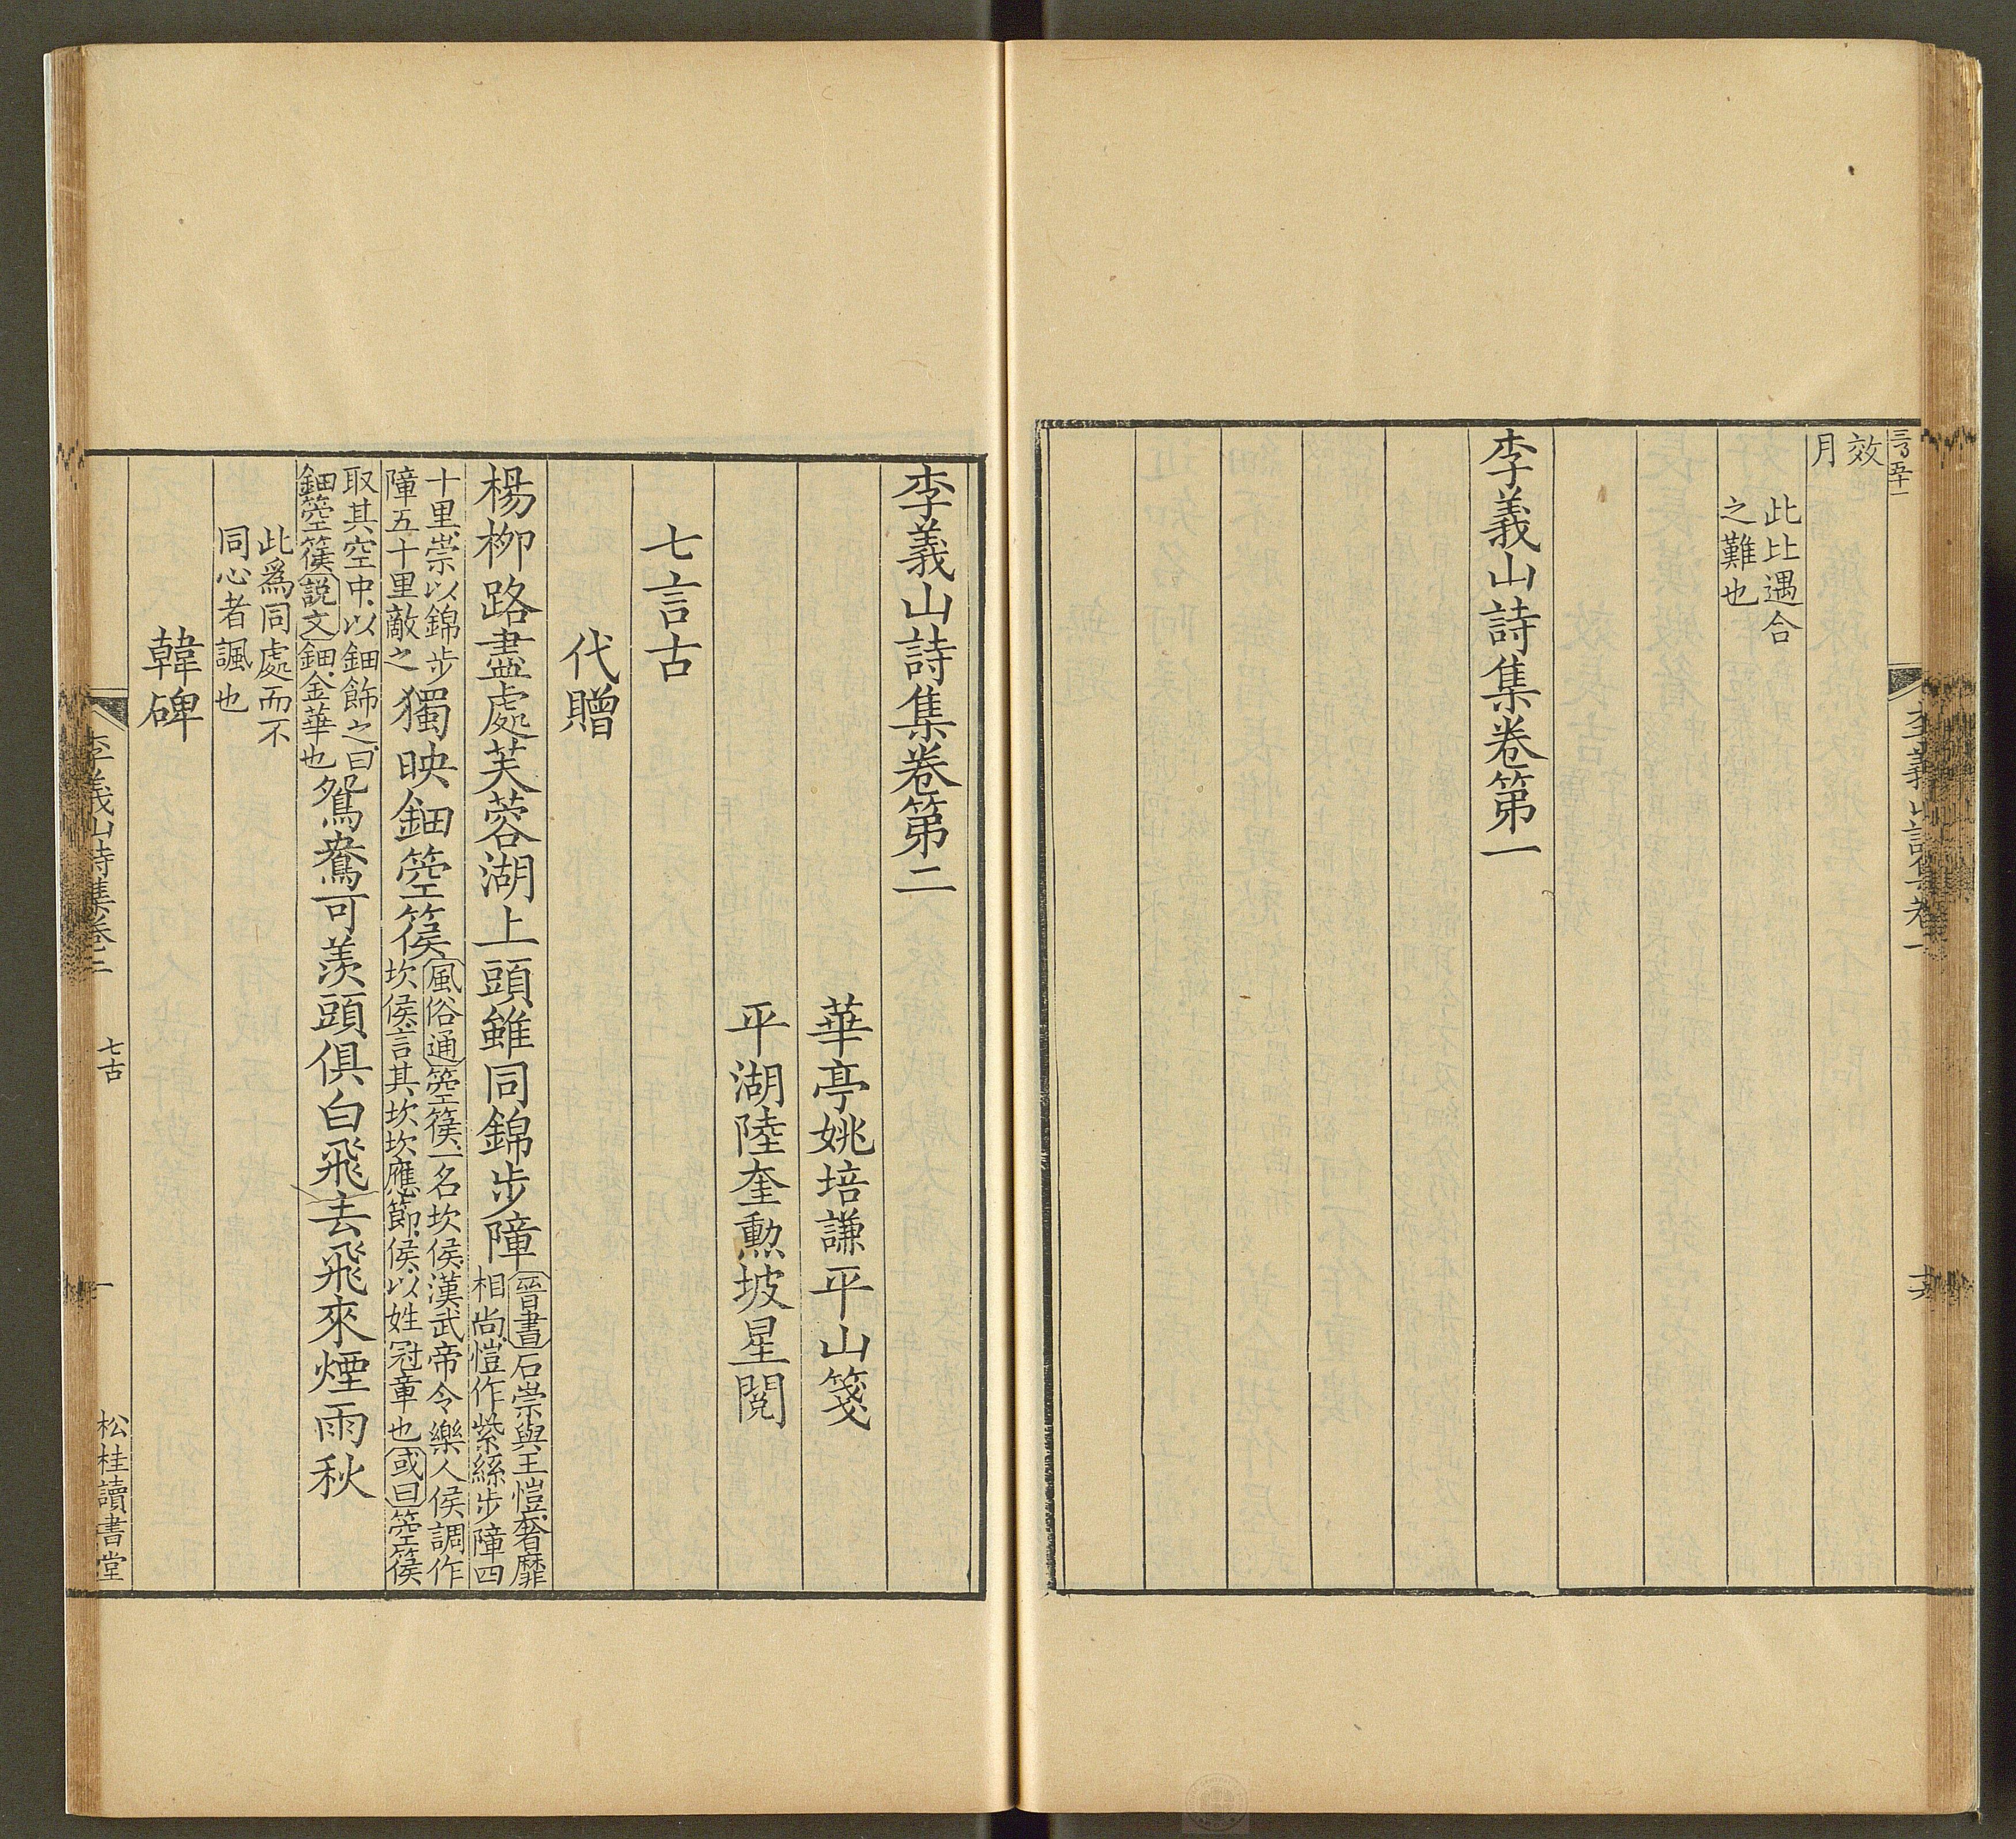 效
月
此比遇合
之難也
李義山詩集卷第一
李義山詩集卷一
李義山詩集卷第二
華亭姚培謙平山箋
平湖陸奎勲坡星閱
七言古
代贈
楊柳路盡處芙蓉湖上頭雖同錦步障晉書石崇與王愷奢靡相尚愷作紫絲步障四
十里崇以錦步障五十里敵之獨映鈿箜篌風俗通箜篌一名坎侯漢武帝令樂人侯調作坎侯言其坎坎應節侯以姓冠章也或曰箜篌
取其空中以鈿飾之曰鈿箜篌說文鈿金華也鴛鴦可羨頭俱白飛去飛來煙雨秋
此爲同處而不
同心者諷也
韓碑
李義山詩集卷二
七古
一
松桂讀書堂